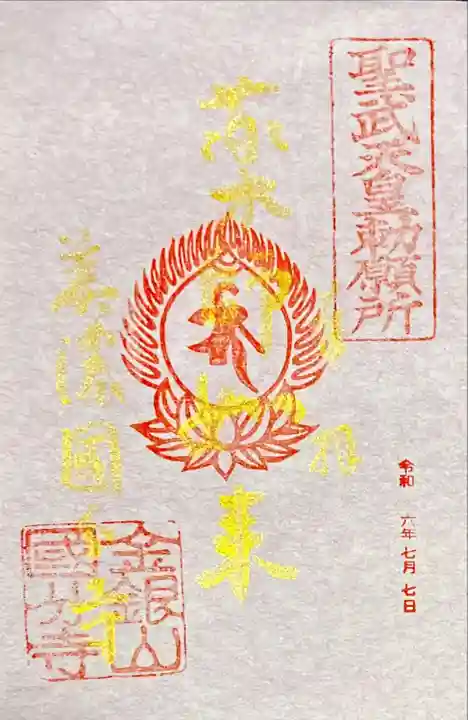 聖武天皇勅願所
薬師如来
美濃國分寺
金銀山
國分寺
令和 六年 七月 七日